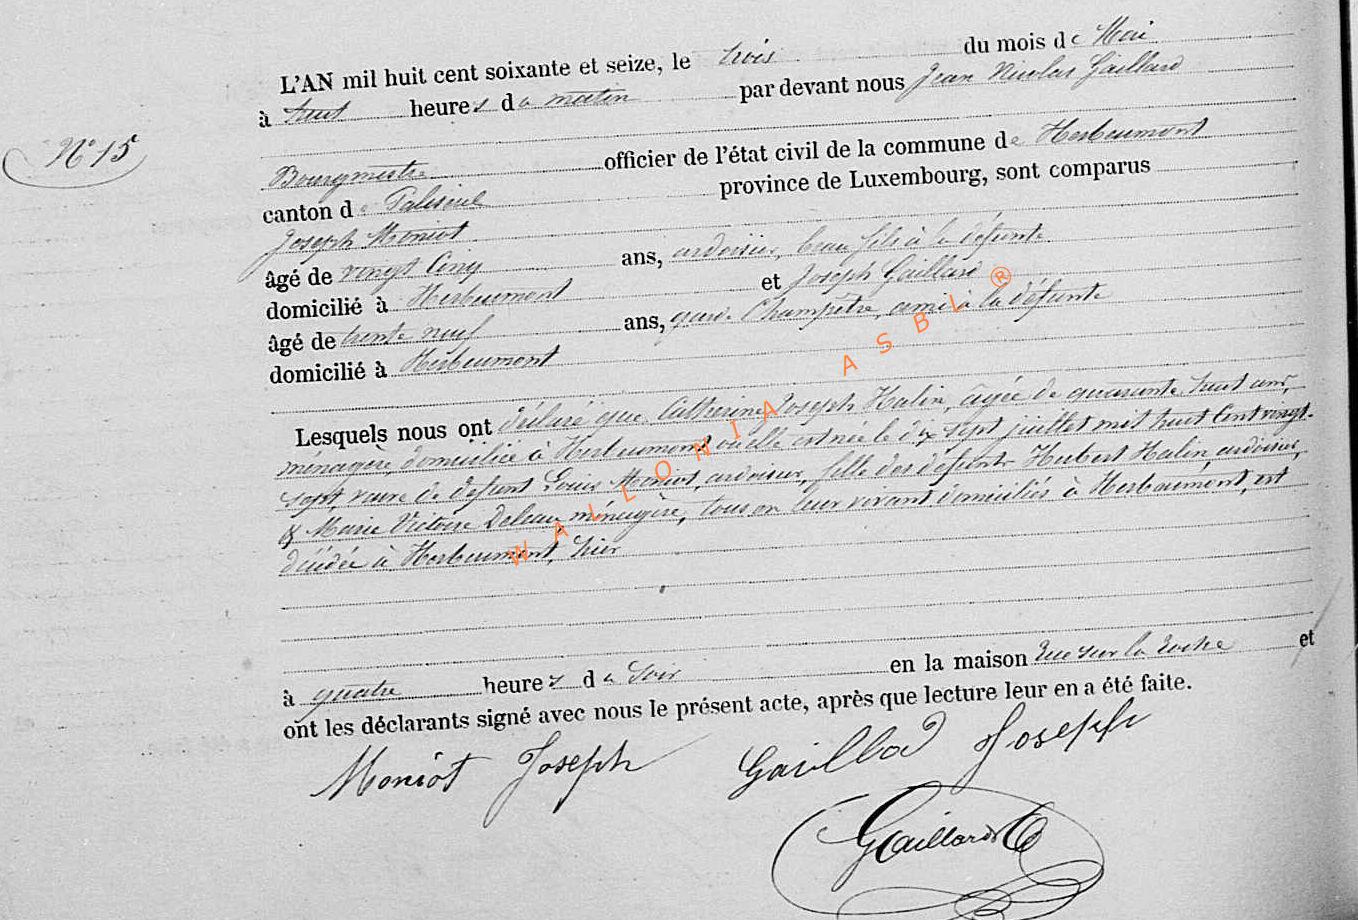 L'AN mil huit cent soixante et seize, le trois du mois de Mai
à huit heures du matin par devant nous Jean Nicolas Gaillard
N° 15
Bourgmestre officier de l'état civil de la commune de Herbeumont
canton de Paliseul province de Luxembourg, sont comparus
Joseph Moniot
âgé de vingt cinq ans, ardoisier, beau fils à la défunte
domicilié à Herbeumont et Joseph Gaillard
âgé de trente neuf ans, garde Champêtre, ami à la défunte
domicilié à Herbeumont
Lesquels nous ont déclaré que Catherine Joseph Halin, agée de quarante huit ans,
ménagère, domiciliée à Herbeumont où elle est née le dix sept juillet mil huit cent vingt-
sept, veuve de défunt Louis Moniot, ardoisier, fille des défunts Hubert Halin, ardoisier,
& Marie Victoire Deleau, ménagère, tous en leur vivant domiciliés à Herbeumont, est
décédée à Herbeumont, hier
à quatre heures du soir en la maison rue sur la roche et
ont les déclarants signé avec nous le présent acte, après que lecture leur en a été faite.
Moniot Joseph Gaillard Joseph
Gaillard
WALLONIA ASBL ®